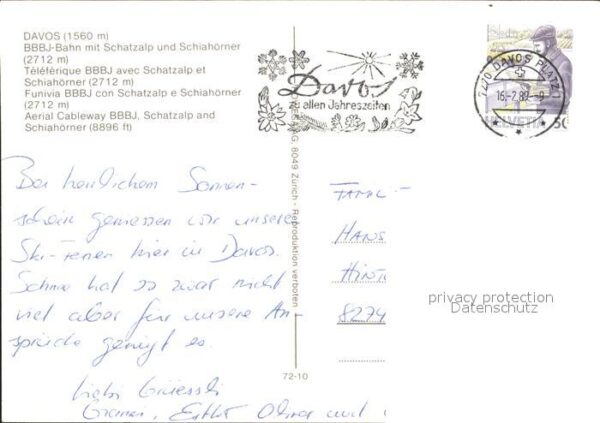 DAVOS (1560 m)
BBBJ-Bahn mit Schatzalp und Schiahörner
(2712 m)
Téléférique BBBJ avec Schatzalp et
Schiahörner (2712 m)
Funivia BBBJ con Schatzalp e Schiahörner
(2712 m)
Aerial Cableway BBBJ, Schatzalp and
Schiahörner (8896 ft)
Davos
zu allen Jahreszeiten
7270 DAVOS PLATZ
HELVETIA 50
AG 8049 Zürich - Reproduktion verboten
72-10
Bei herrlichem Sonnen-
schein geniessen wir unsere
Ski-Ferien hier in Davos.
Schnee hat es zwar nicht
viel aber für unsere An-
sprüche genügt es.
Liebi Grüessli
und
FAMIL
HANS
HINT
8274
privacy protection
Datenschutz